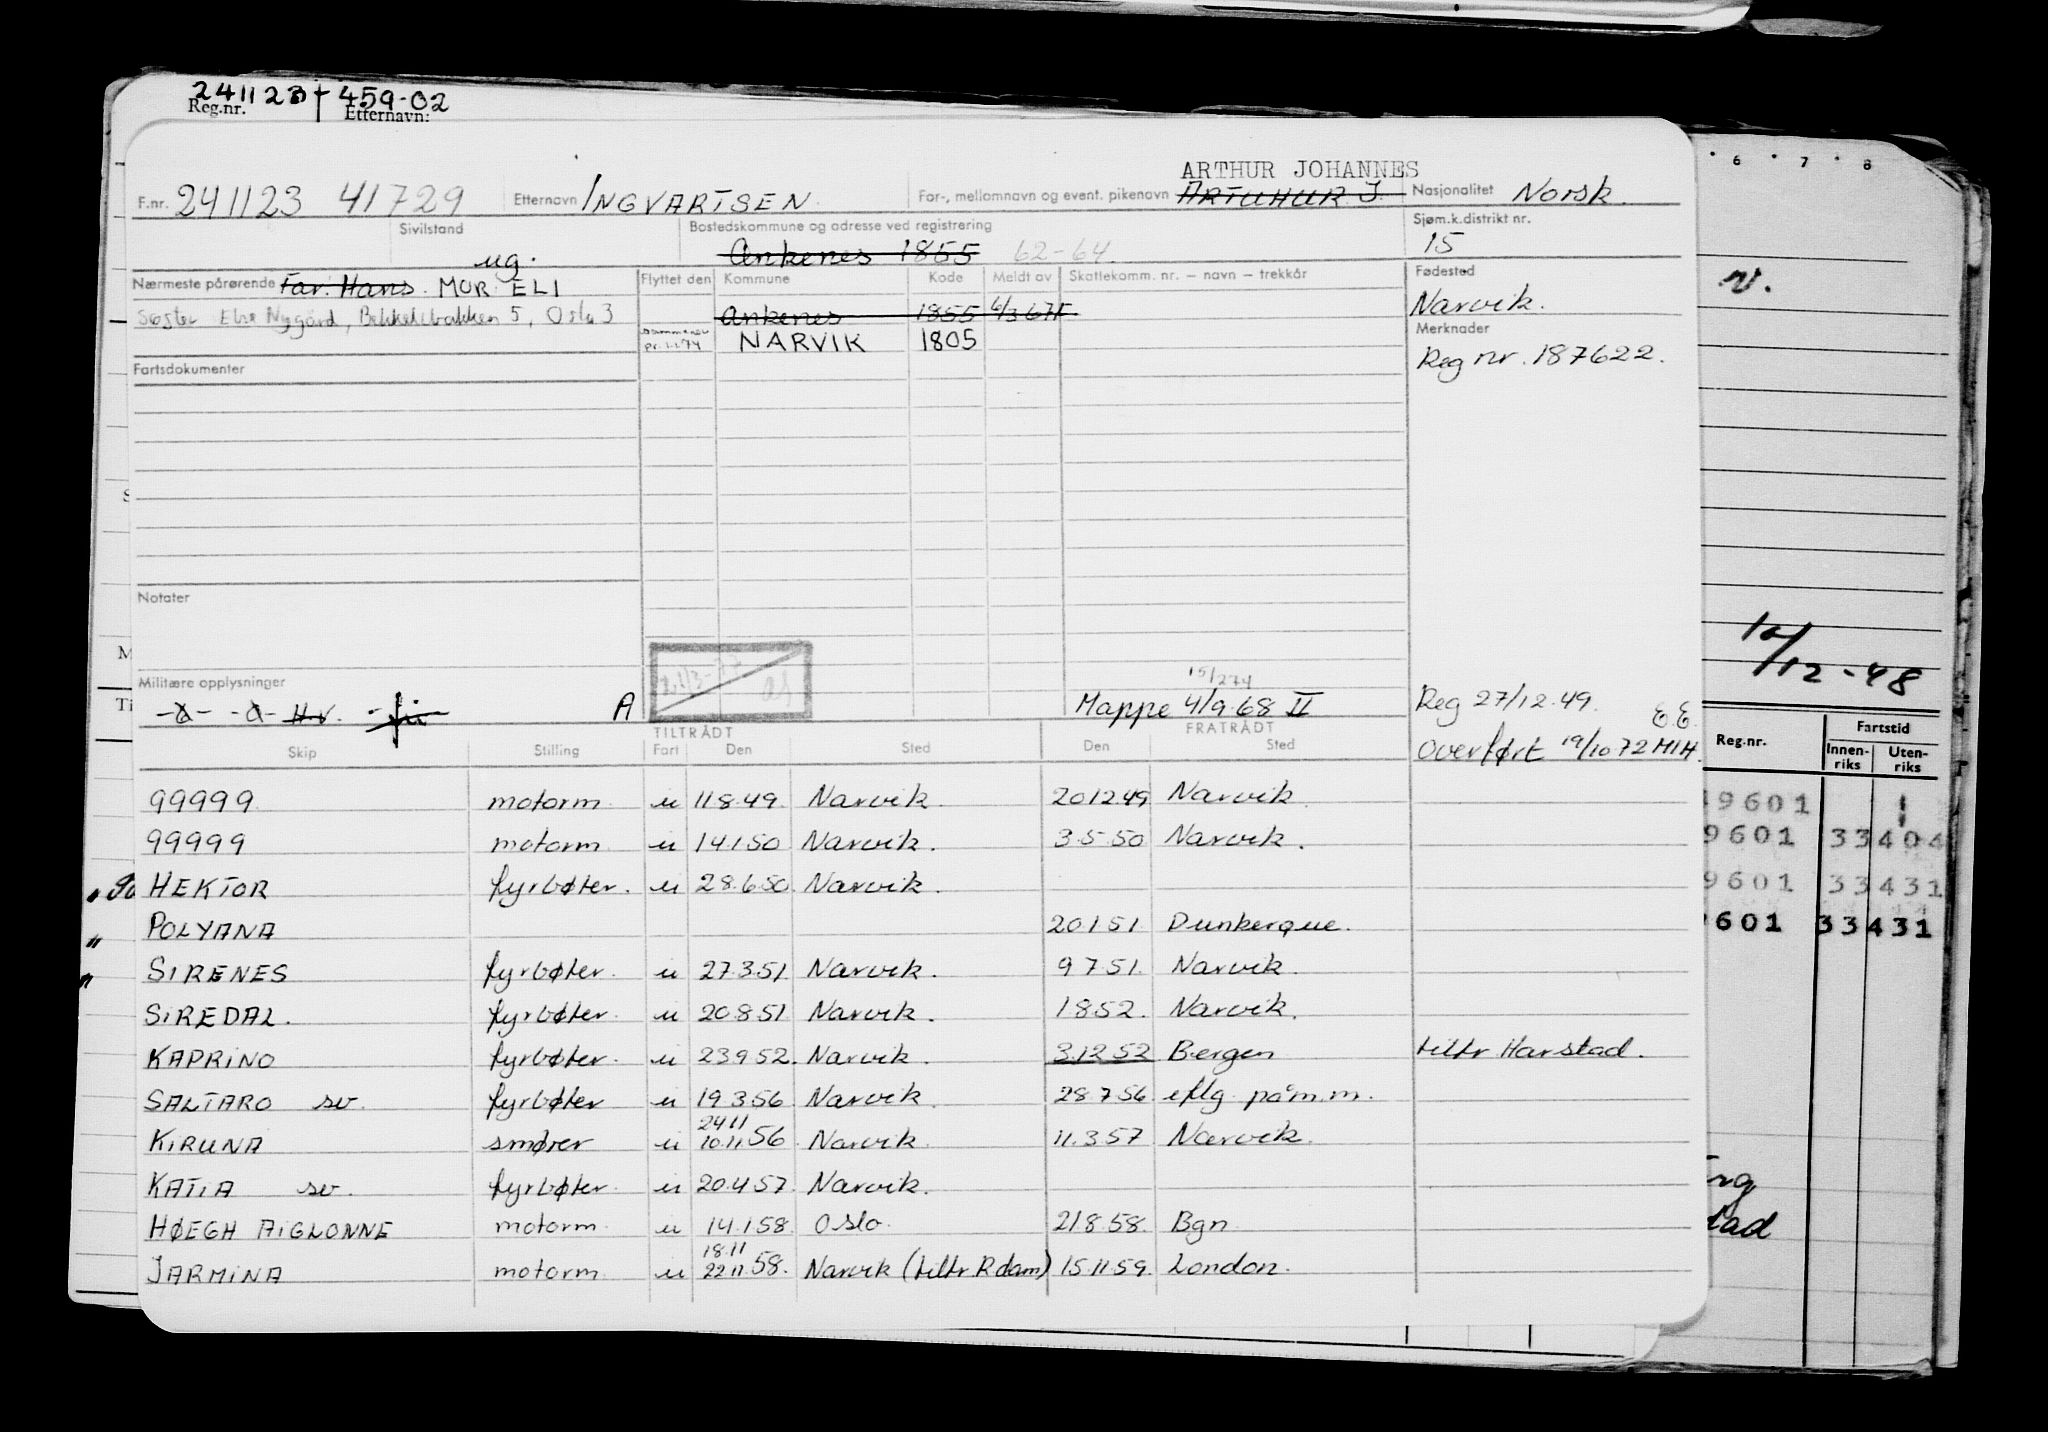 241123 459-02
Reg.nr. Etternavn:
ARTHUR JOHANNES
F.nr. 241123 41729 Etternavn INGVARTSEN For-, mellomnavn og event. pikenavn ARTUHUR J. Nasjonalitet Norsk.
Sivilstand ug. Bostedskommune og adresse ved registrering Ankenes 1855 62-64. Sjøm.k.distrikt nr. 15
Nærmeste pårørende Far: Hans. MOR: ELI Flyttet den Kommune Kode Meldt av Skattekomm. nr. – navn – trekkår Fødested
Søster Else Nygård, 5, Oslo 3 Ankenes 1855 6/3 67F Narvik.
pr. 1-1-74 NARVIK 1805 Merknader
Reg nr. 187622.
Fartsdokumenter
Notater
Militære opplysninger
A Mappe 4/9.68 II Reg 27/12.49.
15/2 74 E.E.
Overført 19/10 72 MIH.
TILTRÅDT FRATRÅDT
Skip Stilling Fart Den Sted Den Sted
99999 motorm u 11.8.49. Narvik. 20.12.49 Narvik.
99999 motorm u 14.1.50 Narvik. 3.5.50 Narvik.
HEKTOR fyrbøter. u 28.6.50. Narvik.
POLYANA 20.1.51 Dunkerque.
SIRENES fyrbøter. u 27.3.51. Narvik. 9.7.51. Narvik.
SIREDAL. fyrbøter. u 20.8.51 Narvik. 1.8.52. Narvik.
KAPRINO fyrbøter. u 23.9.52. Narvik. 3.12.52 Bergen tiltr. Harstad.
SALTARO sv. fyrbøter u 19.3.56 Narvik. 28.7.56 eflg. påm.m.
24.11
KIRUNA smører u 10.11.56 Narvik. 11.3.57 Narvik.
KATIA sv. fyrbøter. u 20.4.57. Narvik.
HØEGH AIGLONNE motorm. u 14.1.58. Oslo. 21.8.58. Bgn.
18.11
JARMINA motorm. u 22.11.58. Narvik (tiltr R.dam) 15.11.59. London.
6 7 8
v.
12/12-48
Reg.nr. Fartstid
Innen-riks Uten-riks
9601
9601 33 404
9601 33 431
601 33 431
rg
tad